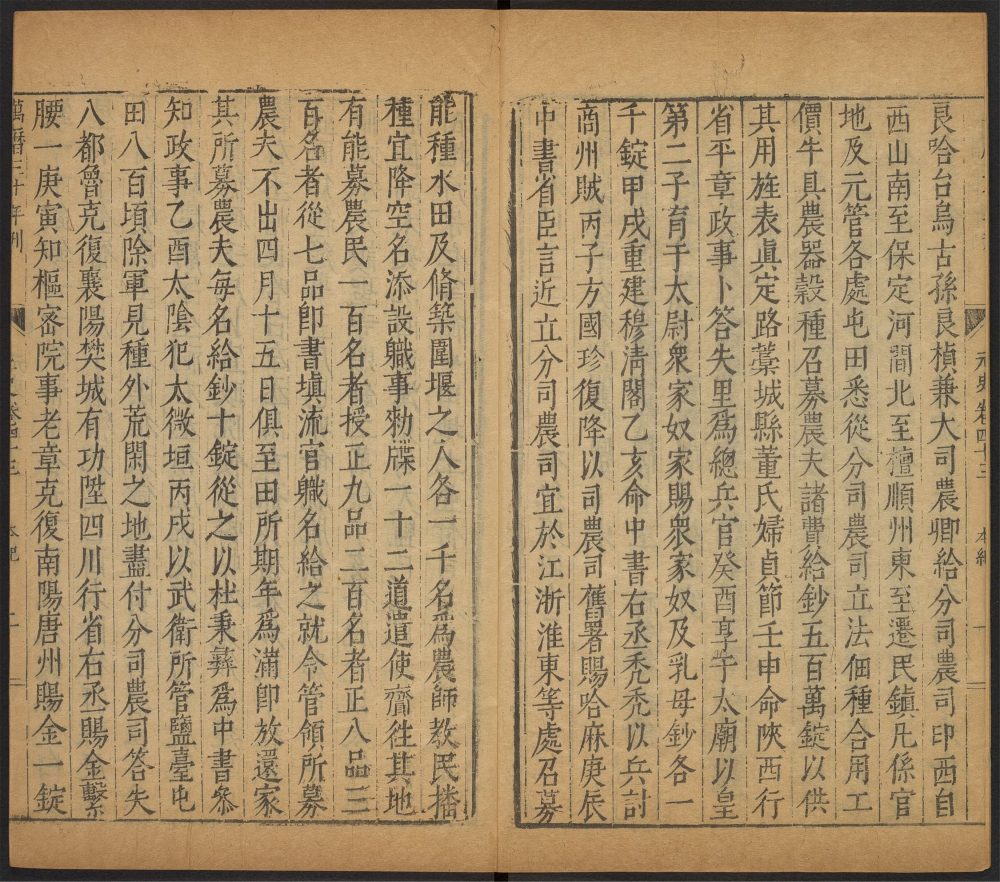 元史卷四十三 本紀 一
良哈台烏古孫良楨兼大司農卿給分司農司印西自
西山南至保定河間北至檀順州東至遷民鎮凡係官
地及元管各處屯田悉從分司農司立法佃種合用工
價牛具農器穀種召募農夫諸費給鈔五百萬錠以供
其用旌表眞定路藁城縣董氏婦貞節壬申命陝西行
省平章政事卜答失里爲總兵官癸酉享于太廟以皇
第二子育于太尉衆家奴家賜衆家奴及乳母鈔各一
千錠甲戌重建穆淸閣乙亥命中書右丞禿禿以兵討
商州賊丙子方國珍復降以司農司舊署賜哈麻庚辰
中書省臣言近立分司農司宜於江浙淮東等處召募
能種水田及脩築圍堰之人各一千名爲農師教民播
種宜降空名添設職事勑牒一十二道遣使齎往其地
有能募農民一百名者授正九品二百名者正八品三
百名者從七品卽書塡流官職名給之就令管領所募
農夫不出四月十五日俱至田所期年爲滿卽放還家
其所募農夫每名給鈔十錠從之以杜秉彝爲中書參
知政事乙酉太陰犯太微垣丙戌以武衛所管鹽臺屯
田八百頃除軍見種外荒閑之地盡付分司農司答失
八都魯克復襄陽樊城有功陞四川行省右丞賜金繫
腰一庚寅知樞密院事老章克復南陽唐州賜金一錠
萬曆三十年刊 卷四十三 本紀 二